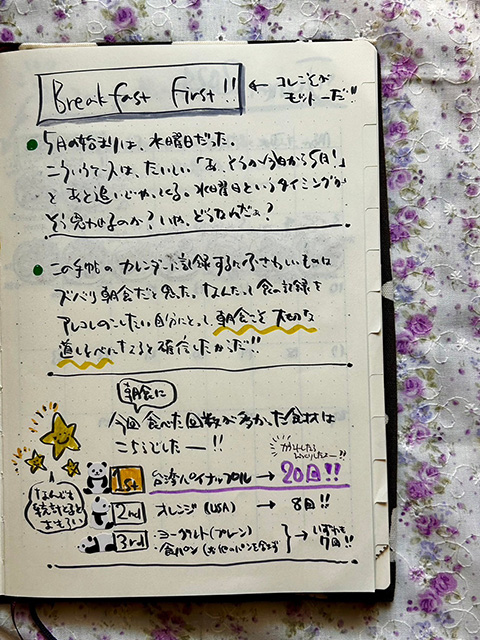 Breakfast First!!
← コレこそが
モットーだ!!
5月の始まりは、水曜日だった。
こういうて人は、たいてい「あ、そうか今日から5月!」
とあと追いじゃ、 水曜日というタイミングが
そう思わせるのか？いや、どうなんだぃ？
この手帖のカレンダーに記録するにふさわしいものは
ズバリ朝食だと思った。なんたって食の記録を
アレコレのこしたい自分にとって朝食こそ大切な
道しるべになると確信したからだ!!
朝食に
今回食べた回数が多かった食材は
こちらでしたー!!
なんでも
続けてると
おもろい
1st 台湾パイナップル → 20回!!
2nd オレンジ (USA) → 8回!!
3rd ・ヨーグルト(プレーン)
・食パン (お他のパンを含まず)
→ いずれも
7回!!